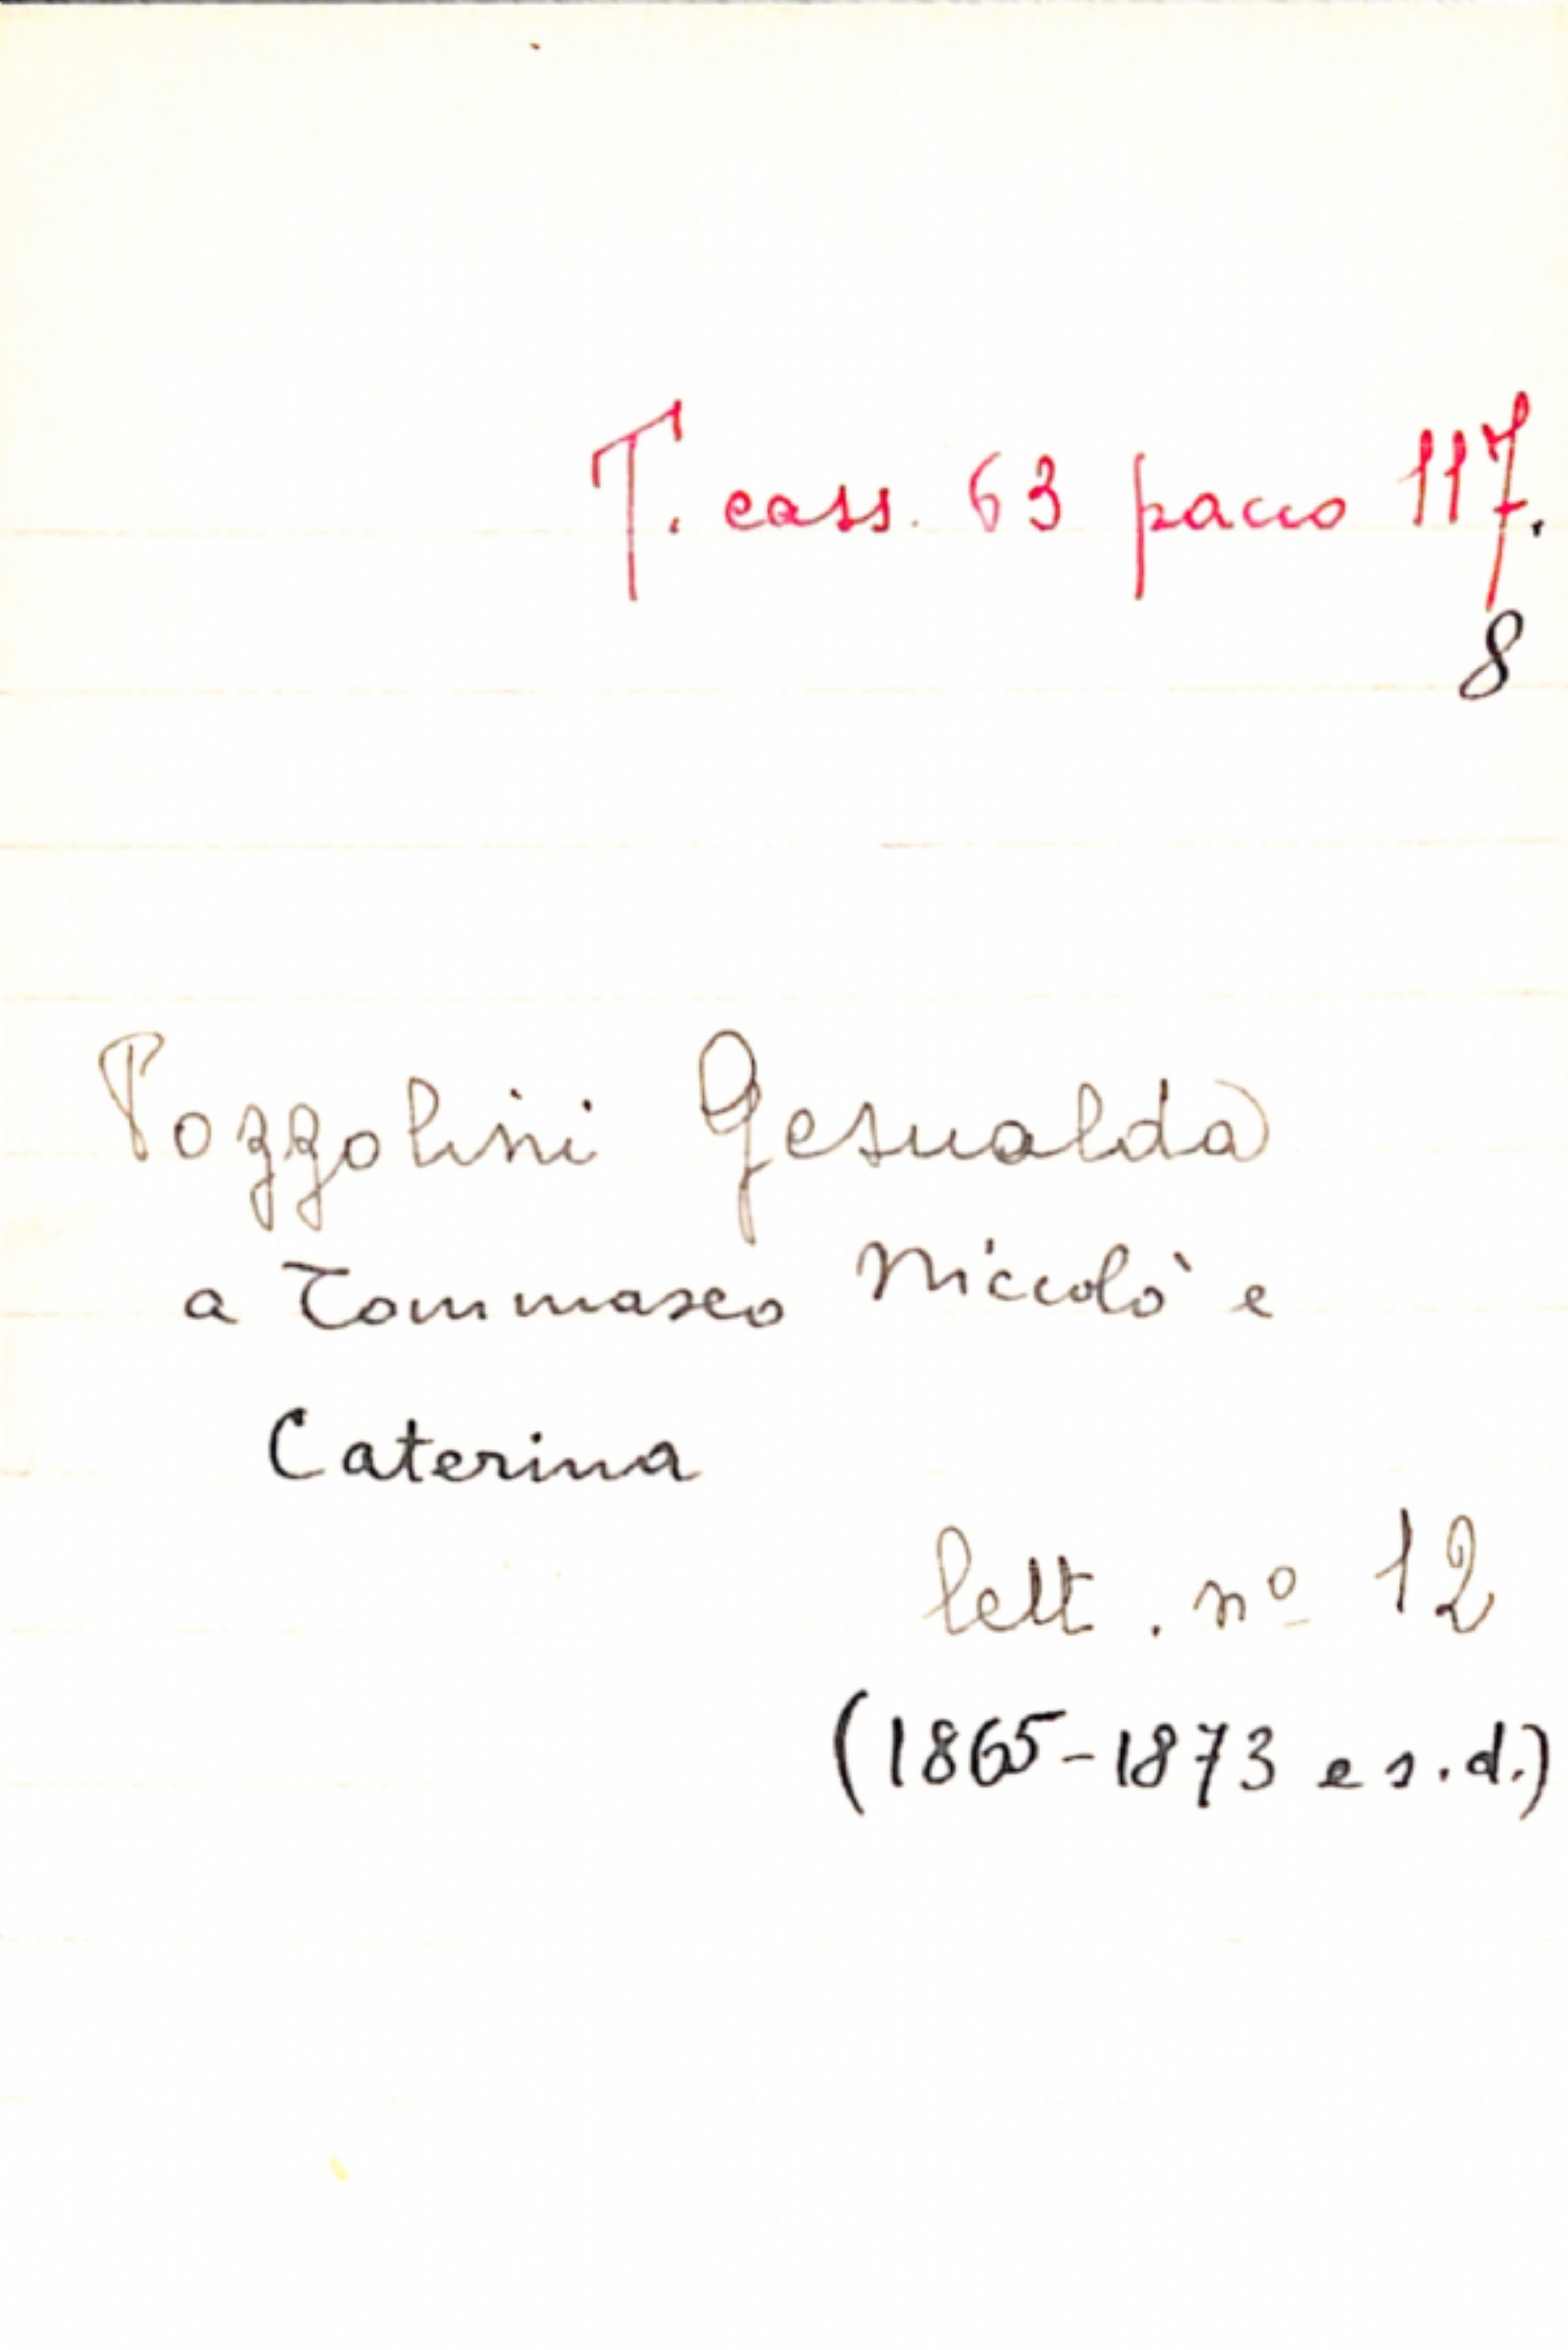 T. cass. 63 pacco 117.
8
Pozzolini Gesualda
a Tommaseo Niccolò e
Caterina
lett. nº 12
(1865-1873 e s.d.)